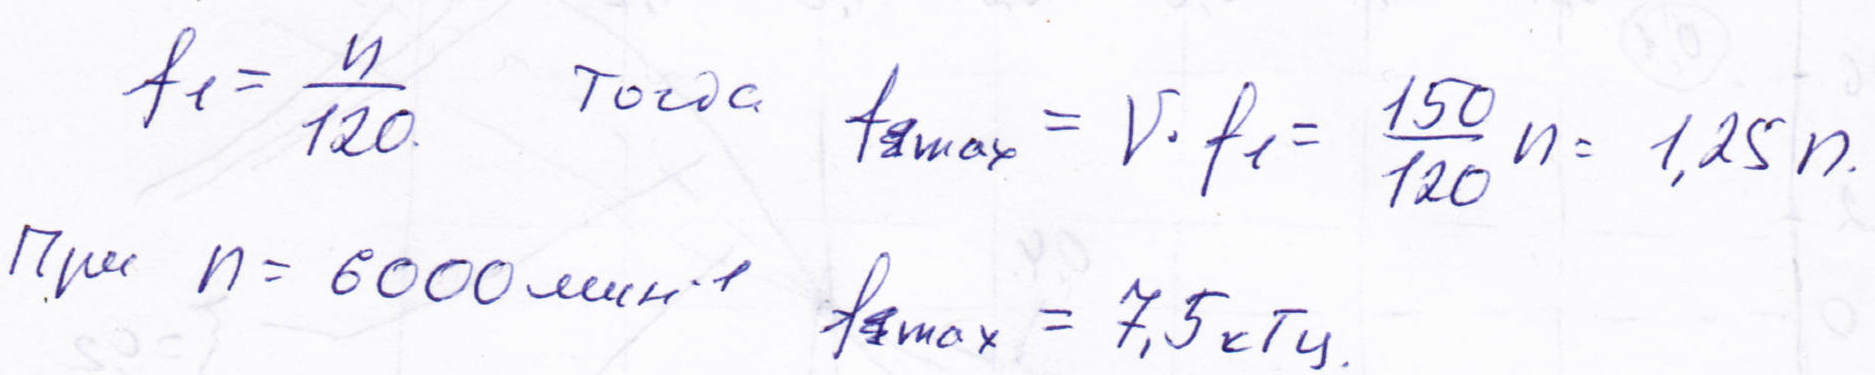 f₁ = n/120. Тогда fgmax = V · f₁ = 150/120 n = 1,25 n.
При n = 6000 мин⁻¹ fgmax = 7,5 кГц.